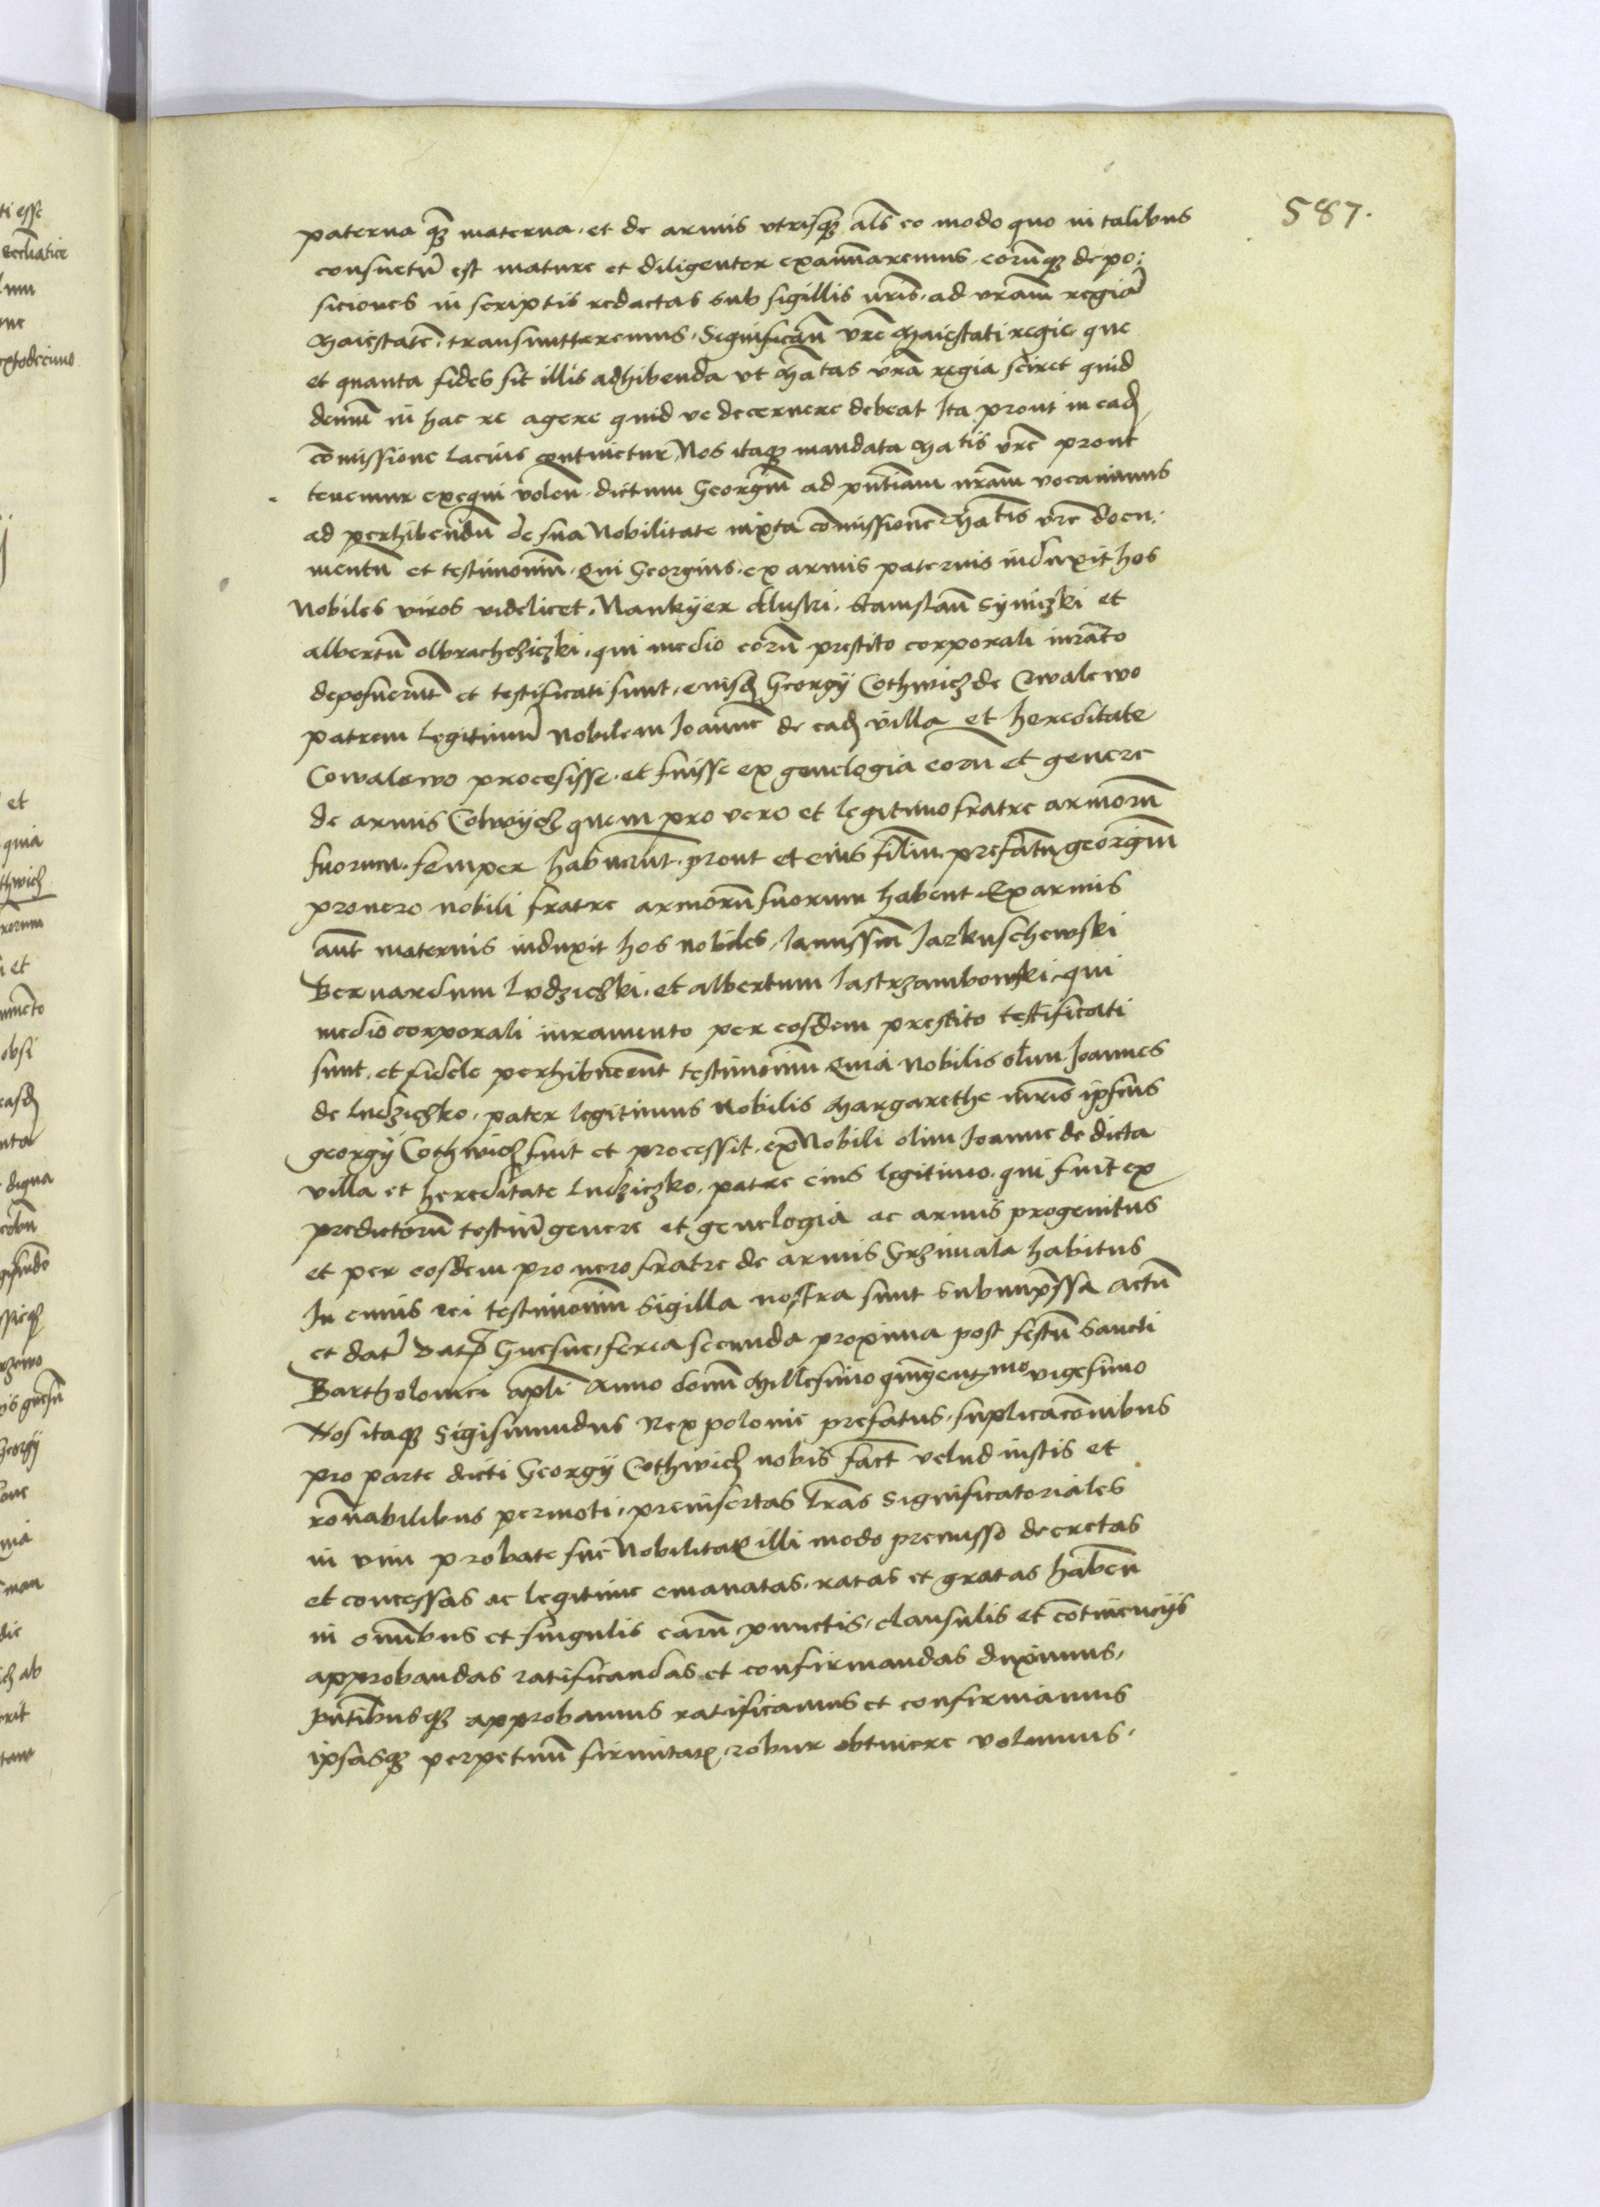 587.
paterna q3 materna. et de armis vtrisq3 als eo modo quo in talibus
consuetu est mature et diligenter examinaremus. eorumq3 depo:
siciones in scriptis redactas sub sigillis nris. ad vram regia
Maiestate. transmitteremus. Significan vre Maiestati regie que
et quanta fides sit illis adhibenda vt Matas vra regia sciret quid
demu in hac re agere quid ve decernere debeat Ita prout in ead
comissione lacius continetur, Nos itaq3 mandata Matis vre prout
tenemur exequi volen. dictum Georgiu ad pntiam nram vocauimus
ad perhibendu de sua Nobilitate iuxta comissione Matis vre docu:
mentu et testimoniu. Qui Georgius. ex armis paternis induxit hos
Nobiles viros videlicet. Nankyer Gluski. Stanislau Syniczki et
albertu olbrachcziczki. qui medio eoru prestito corporali iurato
deposuerut et testificati sunt. eiusd Georgij Cothwicz de Cowalewo
patrem legitimu Nobilem Joanne de ead villa et hereditate
Cowalewo procesisse. et fuisse ex genelogia eoru et genere
de armis Cotwycz quem pro vero et legitimo fratre armoru
suorum. semper habuerut. prout et eius filiu. prefatu georgiu
pro vero nobili fratre armoru suorum habent Ex armis
aut maternis induxit hos nobiles. Janussiu Jarkuschewski
Bernardum Ludziczki. et albertum Jastrzambowski. qui
medio corporali iuramento per eosdem prestito testificati
sunt. et fidele perhibuerunt testimoniu Quia Nobilis olim Joannes
de Ludziczko. pater legitimus Nobilis Margarethe mris ipsius
georgij Cothwicz fuit et processit. ex Nobili olim Joanne de dicta
villa et hereditate Ludziczko. patre eius legitimo. qui fuit ex
predictoru testiu genere et genelogia ac armis progenitus
et per eosdem pro vero fratre de armis Grzimala habitus
In cuius rei testimoniu Sigilla nostra sunt subimpssa actu
et dat Gnesne. feria secunda proxima post festu Sancti
Bartholomei apli Anno domi Millesimo quingentmo vigesimo
Nos itaq3 Sigismundus Rex polonie prefatus. suplicaconibus
pro parte dicti Georgij Cothwicz nobis fact velud iustis et
ronabilibus permoti. preinsertas lras Significatoriales
in vim probate sue Nobilitat illi modo premisso decretas
et concessas ac legitime emanatas. ratas et gratas haben
in omibus et singulis earu punctis. clausulis et contincncijs
approbandas ratificandas et confirmandas duximus.
pntibusq3 approbamus ratificamus et confirmamus
ipsasq3 perpetuu firmitat robur obtinere volumus.